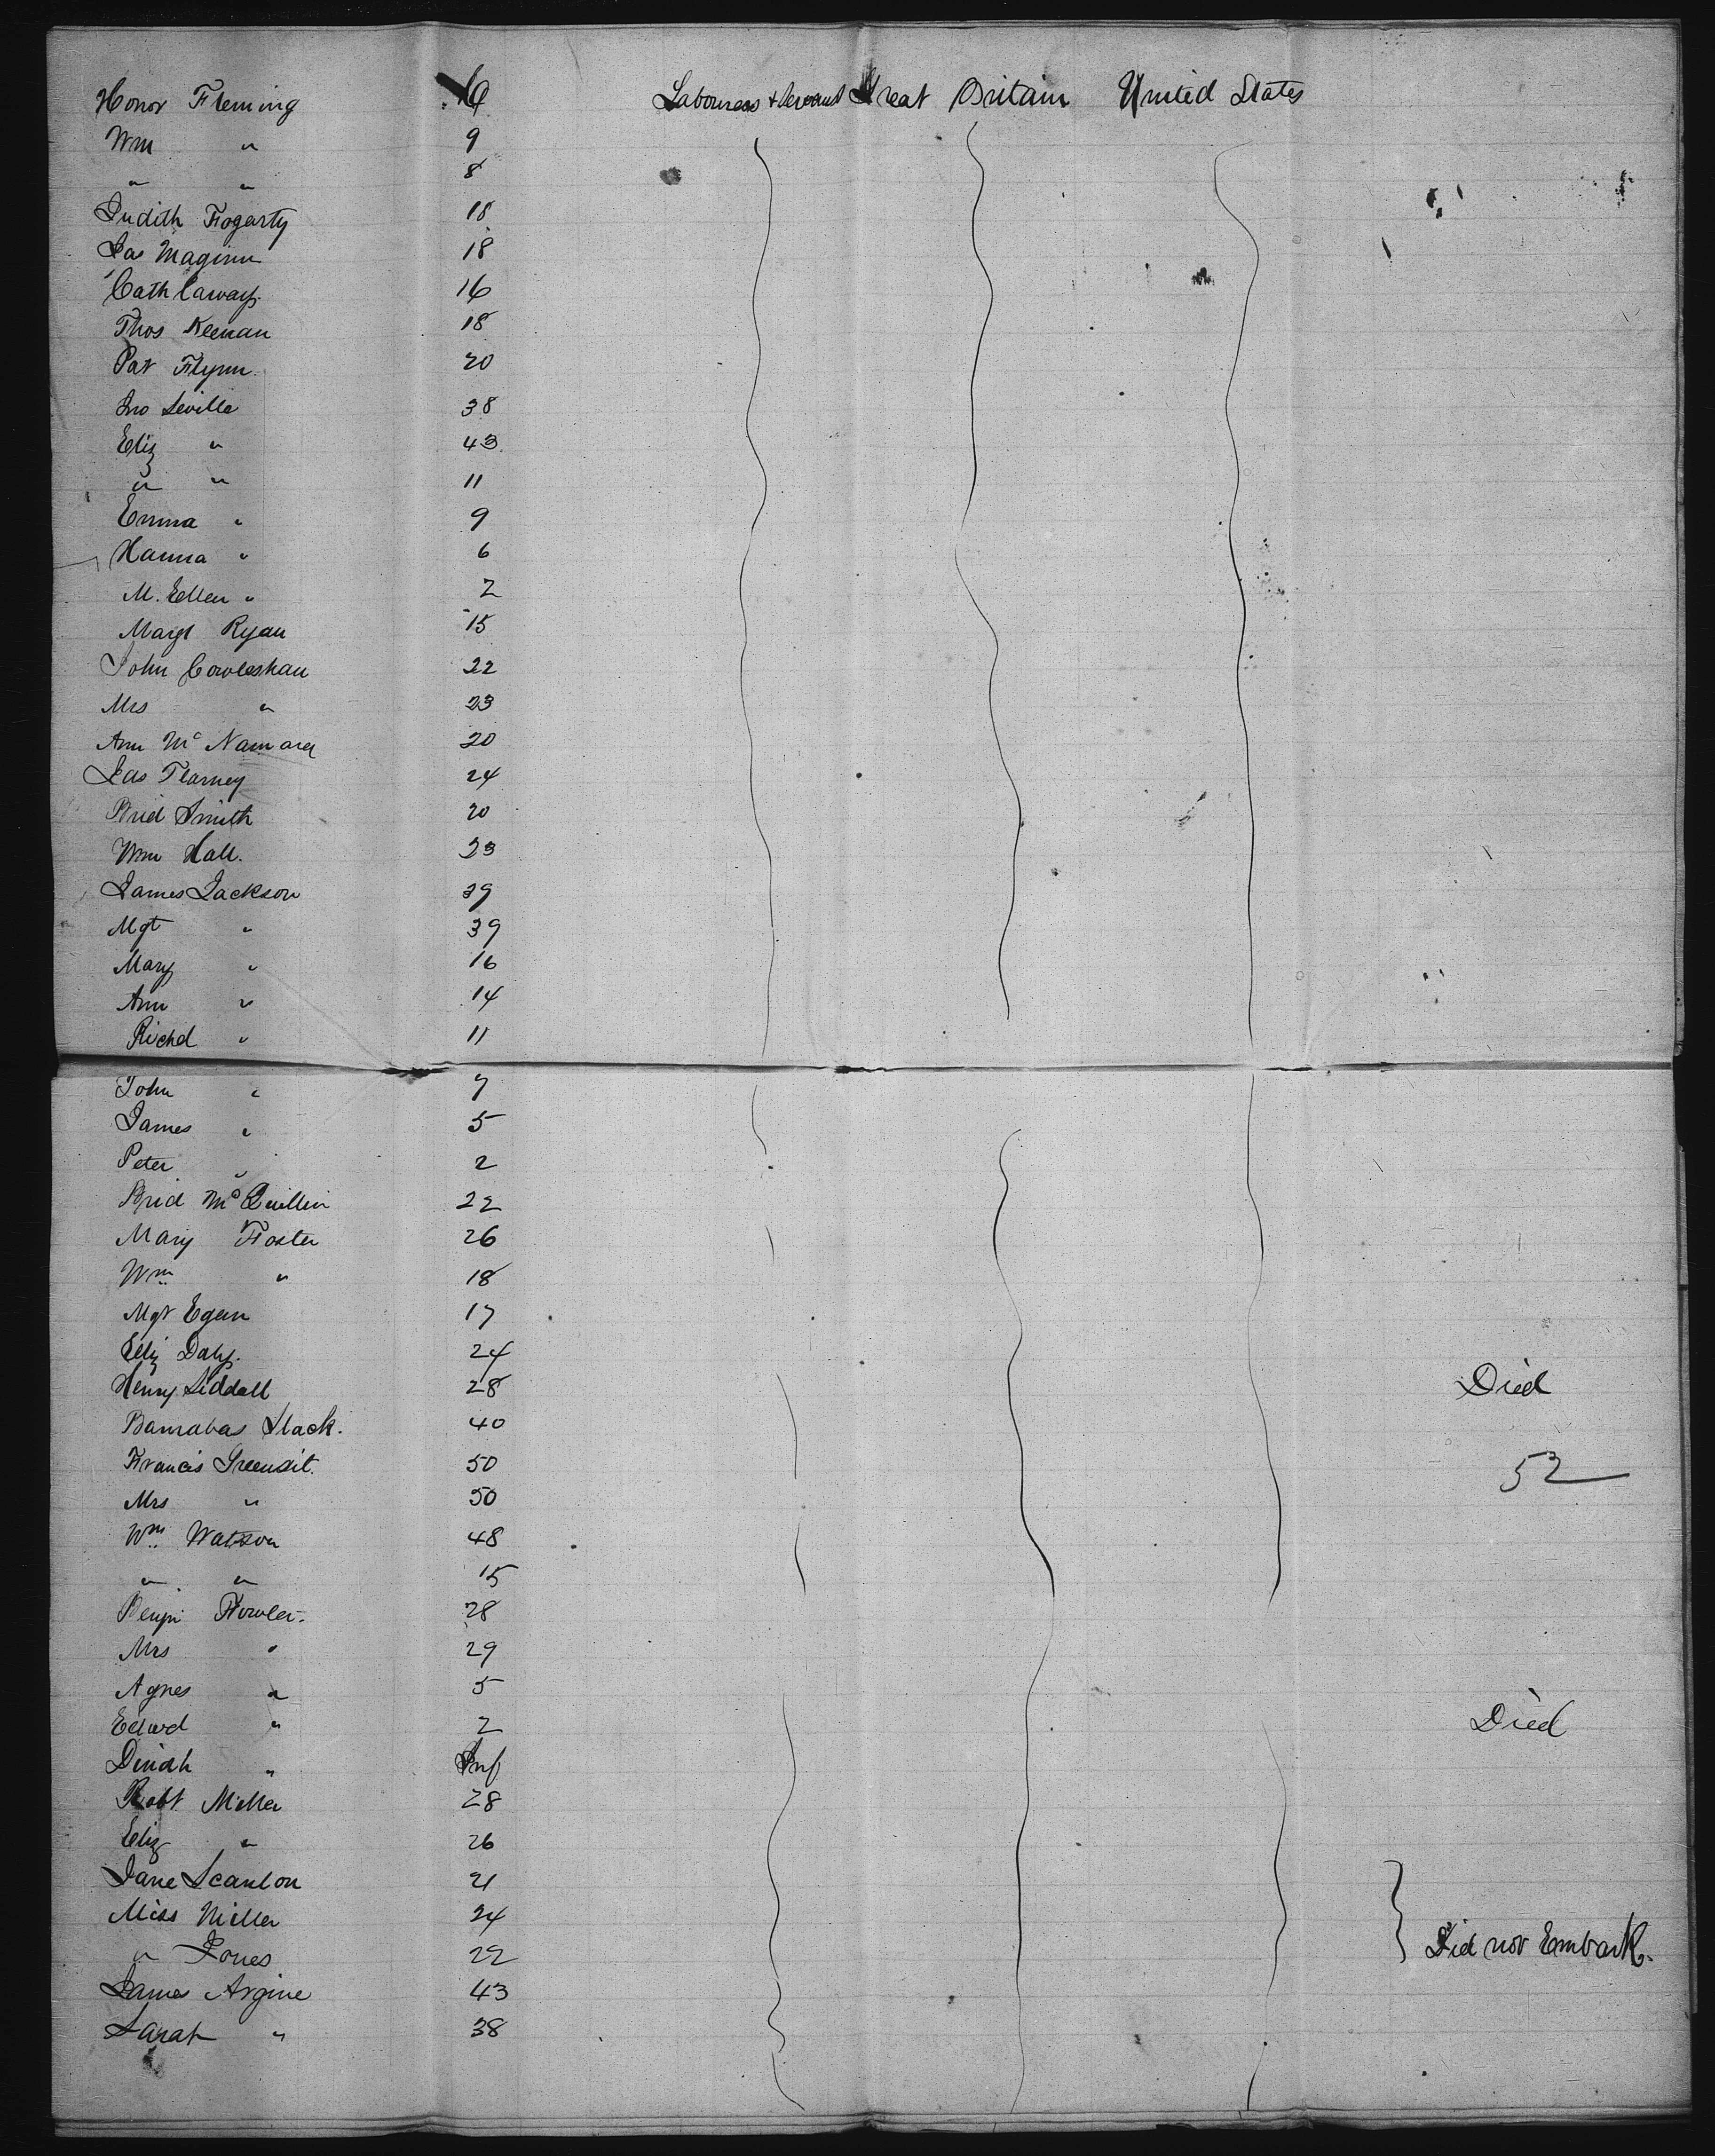 Honor Fleming Labourers & Servants Great Britain United States
Wm " 9
" " 8
Judith Fogarty 18
Jas Maginn 18
Cath 16
Thos Keenan 18
Pat Flynn. 20
Jno Seville 38
Eliz " 43
" " 11
Emma " 9
Hanna " 6
M. Ellen " 2
Margt Ryan 15
John 22
Mrs " 23
Ann McNamara 20
Jas 24
Brid Smith 20
Wm Hall. 23
James Jackson 39
Mgt " 39
Mary " 16
Ann " 14
Richd " 11
John " 7
James " 5
Peter " 2
Brid McQuillin 22
Mary Foster 26
Wm " 18
Mgt Egan 17
Eliz Daly. 24
Henry Siddall 28 Died
Barnabas Slack. 40
Francis 50 52
Mrs " 50
Wm Watson 48
" " 15
Benjn Fowler. 28
Mrs " 29
Agnes " 5
Edwd " 2 Died
Dinah " Inf
Robt Miller 28
Eliz " 26
Jane Scanlon 21
Miss Miller 24
" Jones 22 Did not Embark.
James Argine 43
Sarah " 38